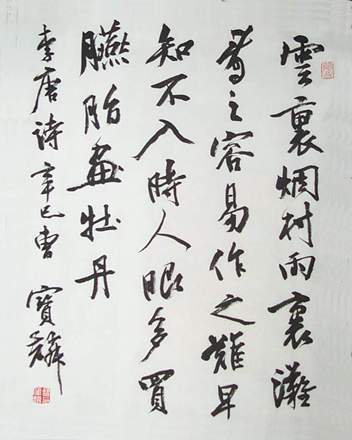 雲裏烟村雨裏灘
看之容易作之難早
知不入時人眼多買
臙脂畫牡丹
李唐詩 辛巳 曹寶麟